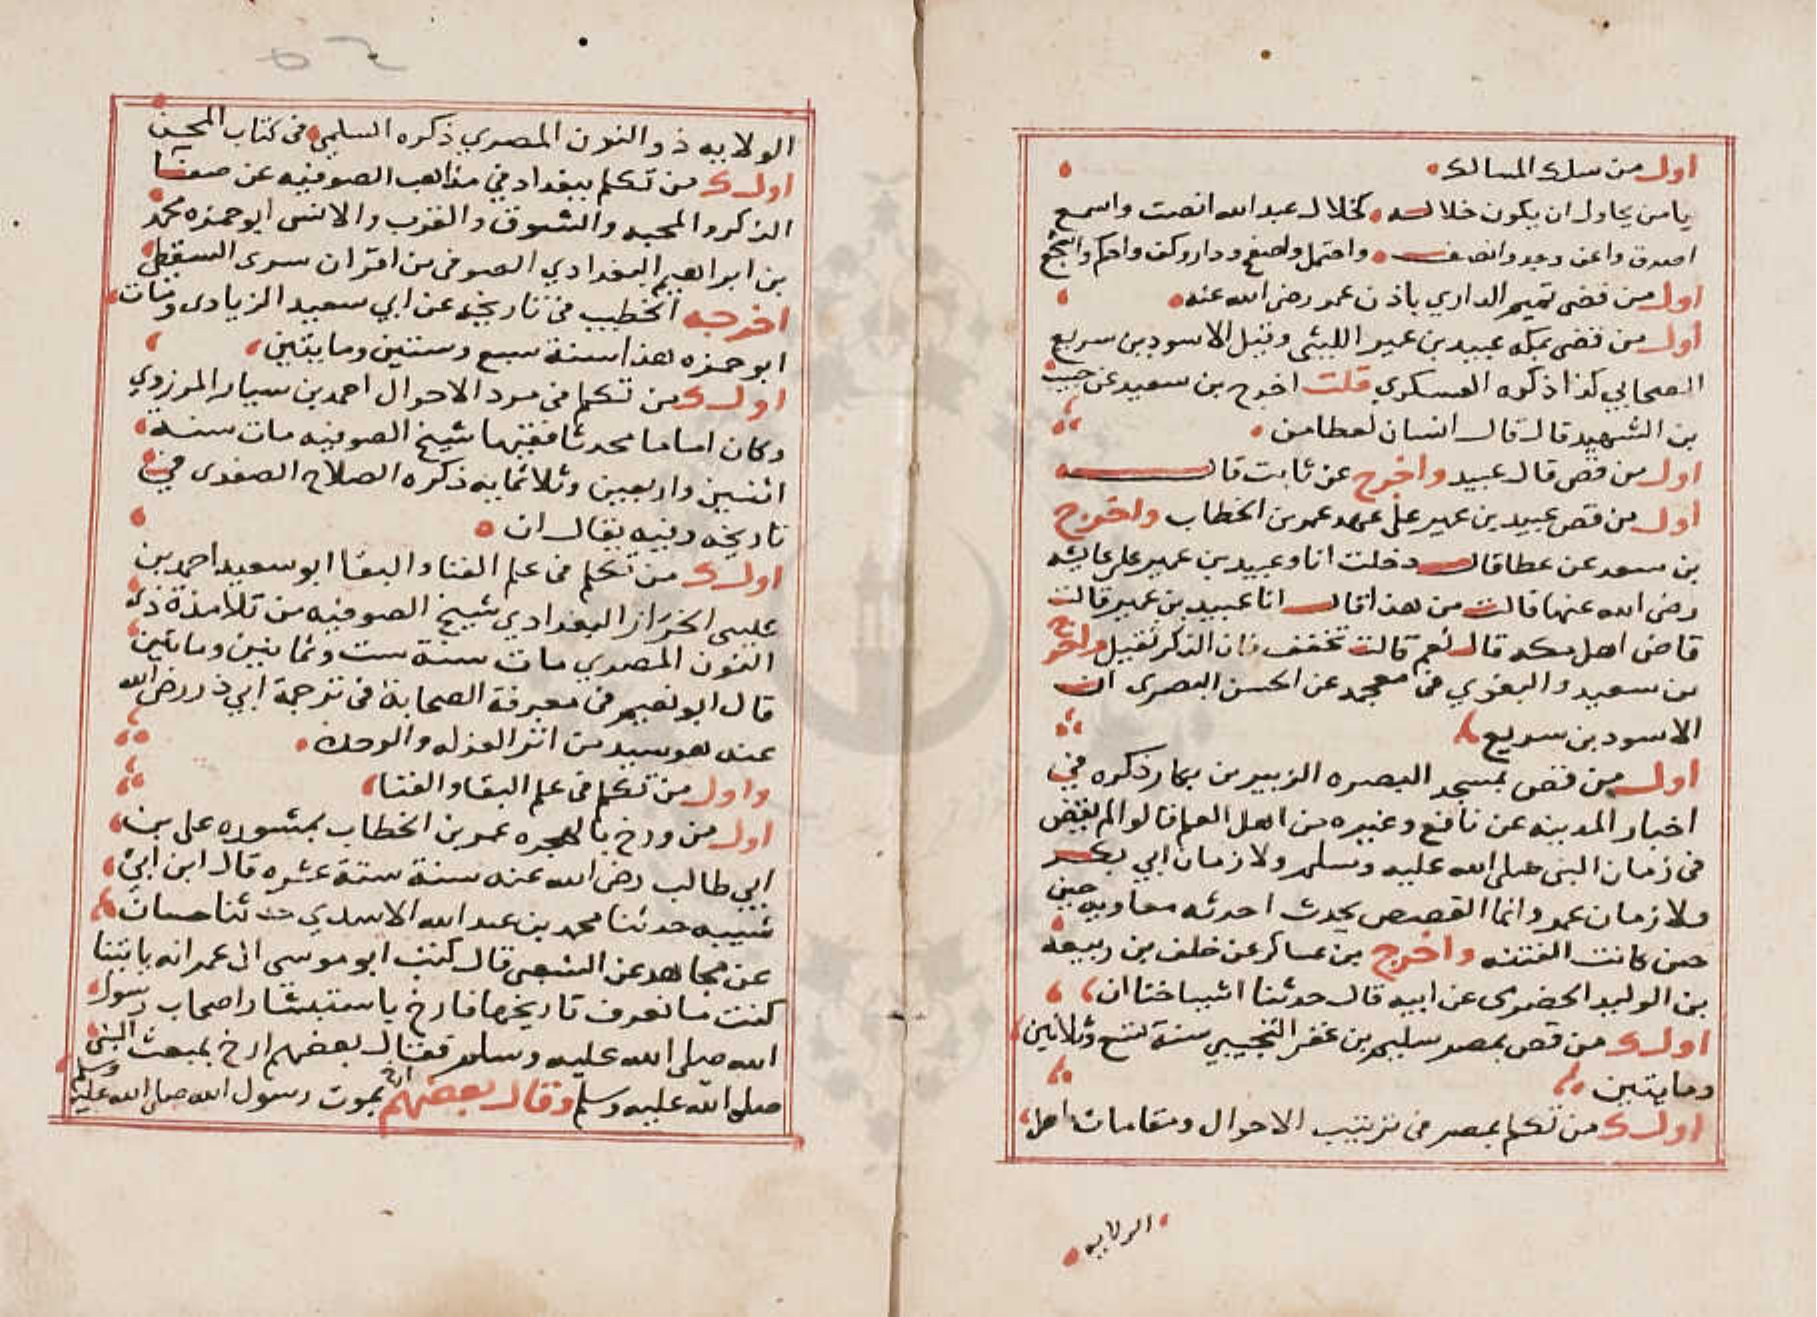 اول من سلك المسالك
يا من يحاول ان يكون خلاله كخلال عبد الله انصت واسمع
اصدق وعف وجد وانصف واحتمل واصفح ودار وكف واحلم واشجع
اول من قص تميم الداري باذن عمر رضى الله عنه
اول من قص بمكه عبيد بن عمير الليثي وقيل الاسود بن سريع
الصحابي كذا ذكره العسكري قلت اخرج بن سعيد عن حبيب
بن الشهيد قال قال انسان لعطا من
اول من قص قال عبيد واخرج عن ثابت قال
اول من قص عبيد بن عمير على عهد عمر بن الخطاب واخرج
بن سعد عن عطا قال دخلت انا وعبيد بن عمير على عايشه
رضى الله عنها قالت من هذا قال انا عبيد بن عمير قالت
قاص اهل مكه قال نعم قالت تخفف فان الذكر ثقيل واخرج
بن سعيد والبغوي في معجمه عن الحسن البصرى ان
الاسود بن سريع
اول من قص بمسجد البصره الزبير بن بكار ذكره في
اخبار المدينه عن نافع وغيره من اهل العلم قالوا لم يقص
فى زمان النبى صلى الله عليه وسلم ولا زمان ابي بكر
ولا زمان عمر وانما القصص يحدث احدثه معاويه حين
حين كانت الفتنه واخرج بن عساكر عن خلف بن ربيعه
بن الوليد الحضرمى عن ابيه قال حدثنا اشياخنا ان
اول من قص بمصر سليم بن عفر التجيبي سنة تسع وثلاثين
ومايتين
اول من تكلم بمصر فى ترتيب الاحوال ومقامات اهل
الولايه
الولايه ذو النون المصري ذكره السلمي فى كتاب المحن
اول من تكلم ببغداد في مذاهب الصوفيه عن صفا
الذكر والمحبه والشوق والقرب والانس ابو حمزه محمد
بن ابراهيم البغدادي الصوفى من اقران سرى السقطي
اخرجه الخطيب فى تاريخه عن ابي سعيد الزيادى ومات
ابو حمزه هذا سنة سبع وستين ومايتين
اول من تكلم فى مرد الاحوال احمد بن سيار المرزوي
وكان اماما محدثا فقيها شيخ الصوفيه مات سنة
اثنين واربعين وثلاثمايه ذكره الصلاح الصفدى في
تاريخه وفيه يقال ان
اول من تكلم فى علم الفنا والبقا ابو سعيد احمد بن
عيسى الخزاز البغدادي شيخ الصوفيه من تلامذة ذى
النون المصري مات سنة ست وثمانين وماتين
قال ابو نعيم فى معرفة الصحابة فى ترجمة ابي ذر رضى الله
عنه هو سيد من اثر العزله والوحده
واول من تكلم فى علم البقا والفنا
اول من ورخ بالهجره عمر بن الخطاب بمشوره على بن
ابي طالب رضى الله عنه سنة ستة عشره قال ابن ابي
شيبه حدثنا محمد بن عبد الله الاسدي حدثنا حسان
عن مجاهد عن الشعبى قال كتب ابو موسى الى عمر انه ياتينا
كتب ما نعرف تاريخها فارخ يا ستشار اصحاب رسول
الله صلى الله عليه وسلم فقال بعضهم ارخ بمبعث النبى
صلى الله عليه وسلم وقال بعضهم ارخ بموت رسول الله صلى الله عليه وسلم